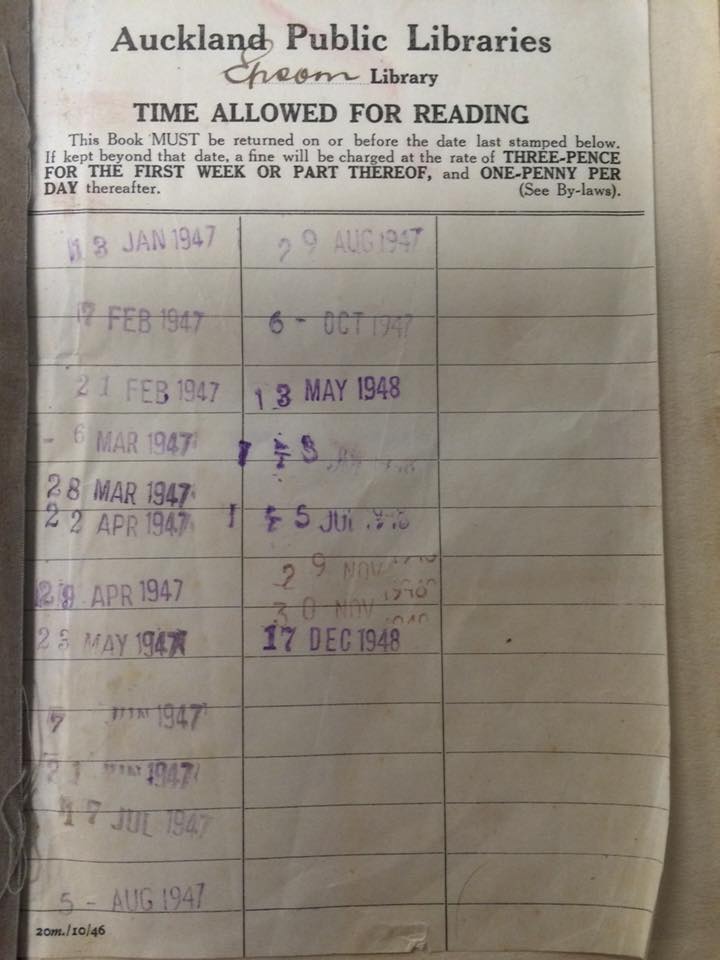 Auckland Public Libraries
Epsom Library
TIME ALLOWED FOR READING
This Book MUST be returned on or before the date last stamped below.
If kept beyond that date, a fine will be charged at the rate of THREE-PENCE
FOR THE FIRST WEEK OR PART THEREOF, and ONE-PENNY PER
DAY thereafter. (See By-laws).
13 JAN 1947
17 FEB 1947
21 FEB 1947
- 6 MAR 1947
28 MAR 1947
22 APR 1947
29 APR 1947
23 MAY 1947
7 JUN 1947
21 JUN 1947
17 JUL 1947
5 - AUG 1947
20m./10/46
29 AUG 1947
6 - OCT 1947
13 MAY 1948
5 JUL
29 NOV 1948
30 NOV
17 DEC 1948